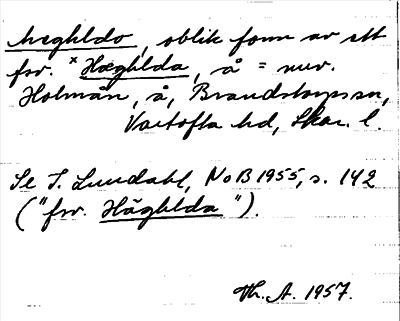 hæghldo, oblik form av ett
fsv. *Hæghlda, å = nuv.
Holmån, å, Brandstorps sn,
Vartofta hd, Skar. l.
Se I. Lundahl, NoB 1955, s. 142
("fsv. Häghlda").
Th. A. 1957.